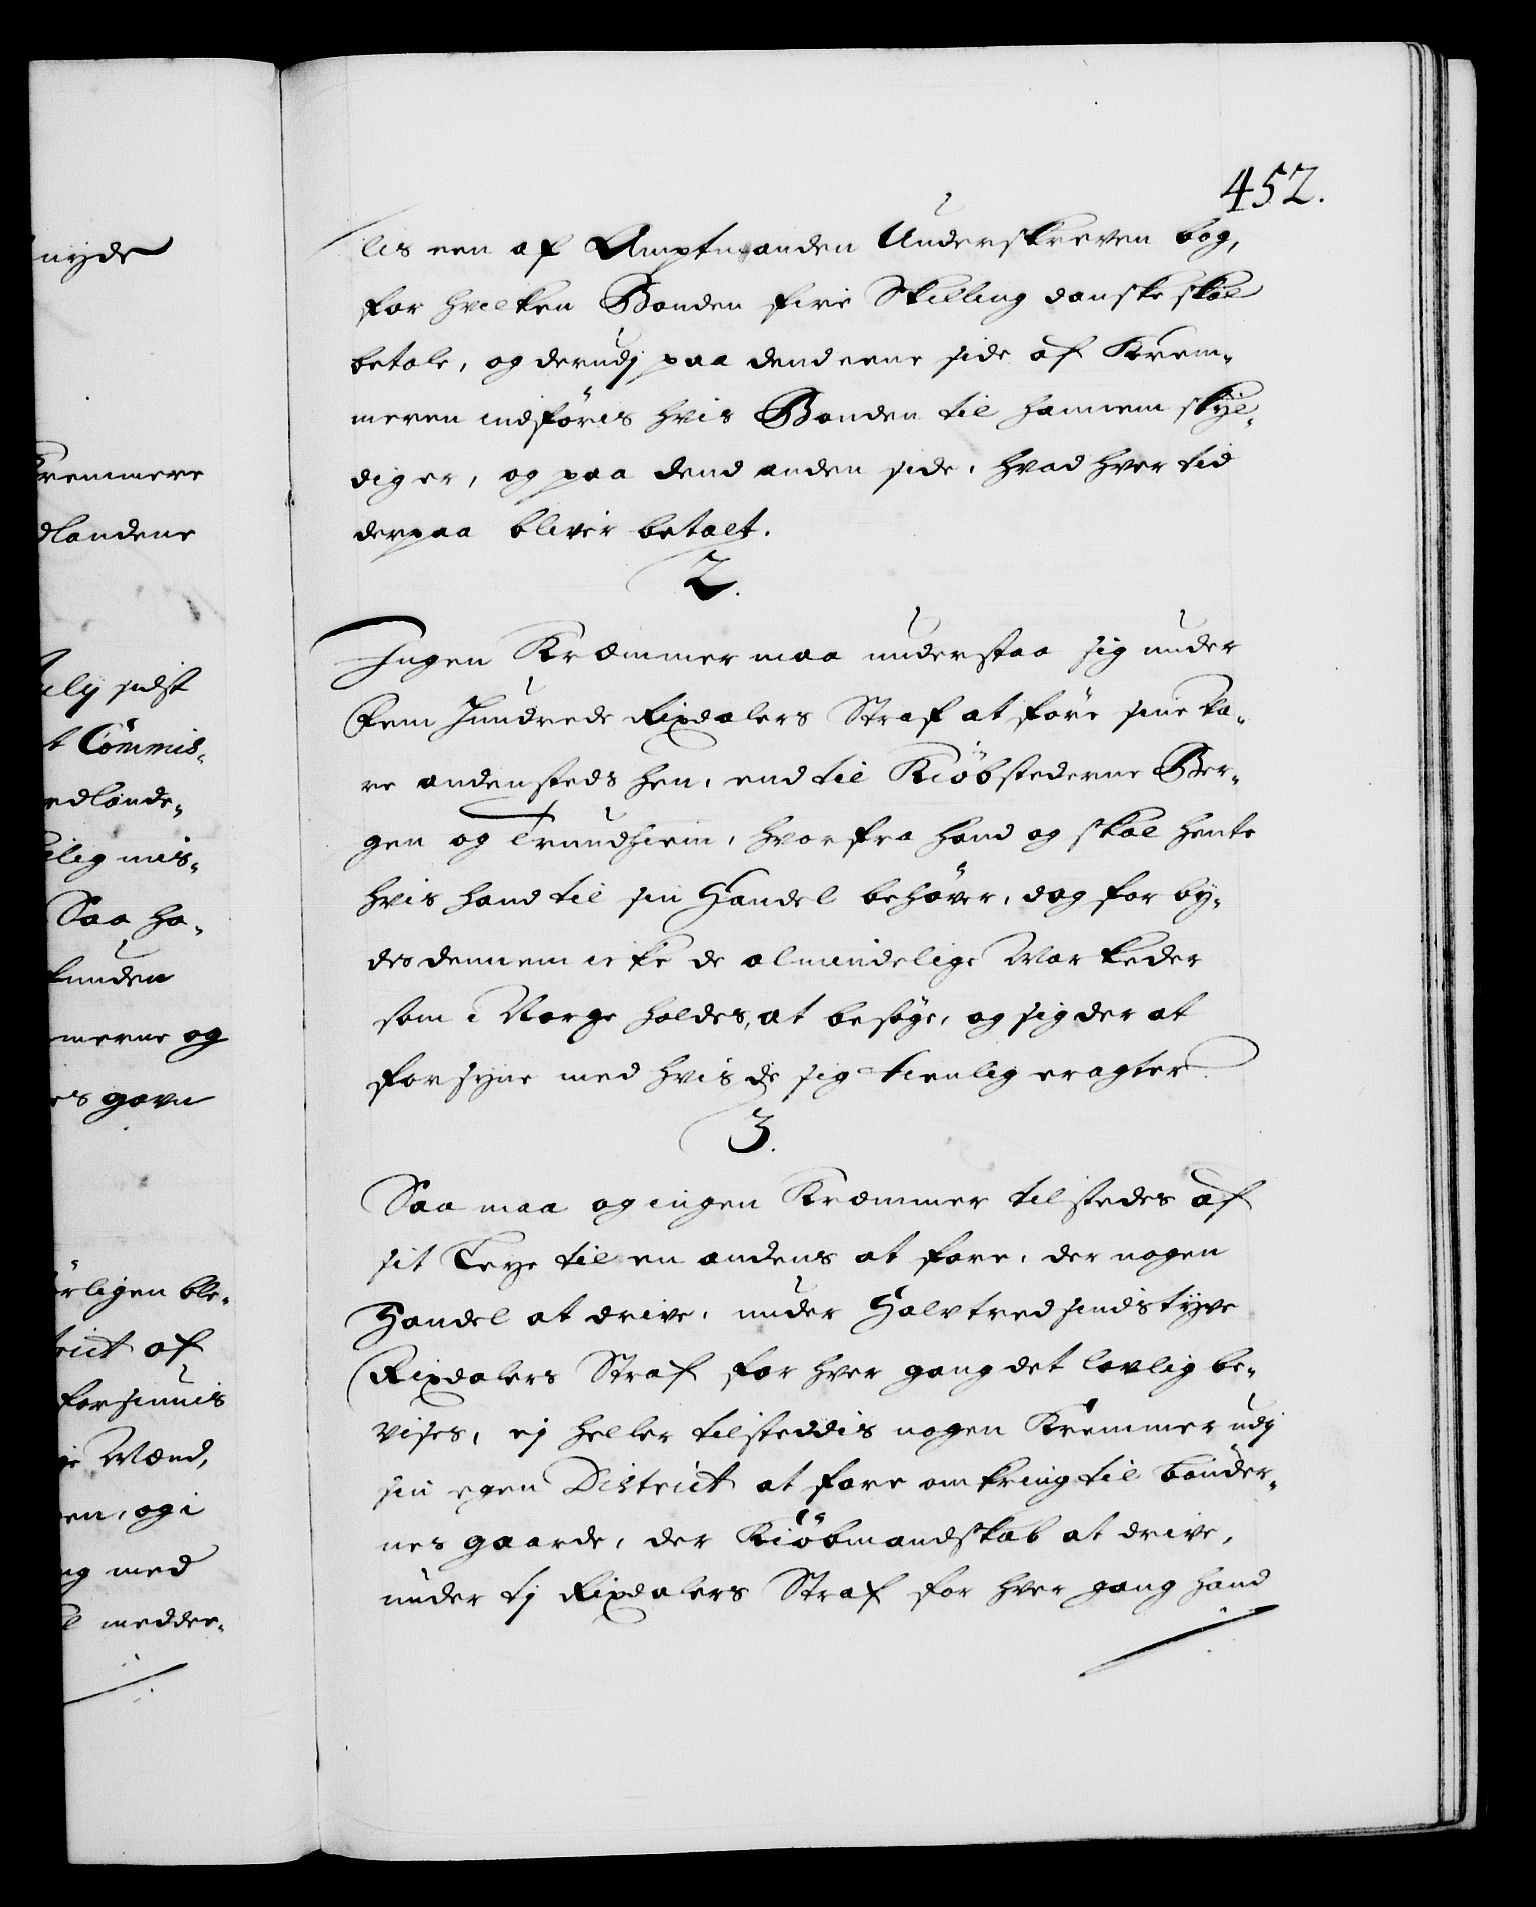 452.
lis een af Amptmanden Underskreven bog,
for hvilken Bonden fire Skilling danske skal
betale, og derudj paa dend eene side af Krem-
meren indföris hvis Bonden til hannem skyl-
dig er, og paa dend anden side, hvad hver tid
derpaa bliver betalt.
2.
Ingen Kræmmer maa understaa sig under
Fem Hundrede Rixdalers Straf at före sine Va-
re andensteds hen, end til Kiöbstederne Ber-
gen og Trundhiem, hvorfra hand og skal hente
hvis hand til sin Handel behöver, dog forby-
des dennem icke de almindelige Markeder
som i Norge holdes, at besöge, og sig der at
forsyne med hvis de sig tienlig eragter
3.
Saa maa og ingen Kræmmer tilstedes af
sit Leye til en andens at fare, der nogen
Handel at drive, under Halvtredsindstyve
Rixdalers Straf for hver gang det lovlig be-
vises, ej heller tilsteddis nogen Kremmer udj
sin egen District at fare omkring til bönder-
nes gaarde, der Kiöbmandskab at drive,
under tj Rixdalers Straf for hver gang hand
nyde
Kremmere
dlandene
July sidst
t Commis-
rdlande-
elig mis-
Saa ha-
kunden
merne og
es gavn
örligen ble-
trict af
forsinnis
ge Mænd,
en, og i
ng med
l meddee-